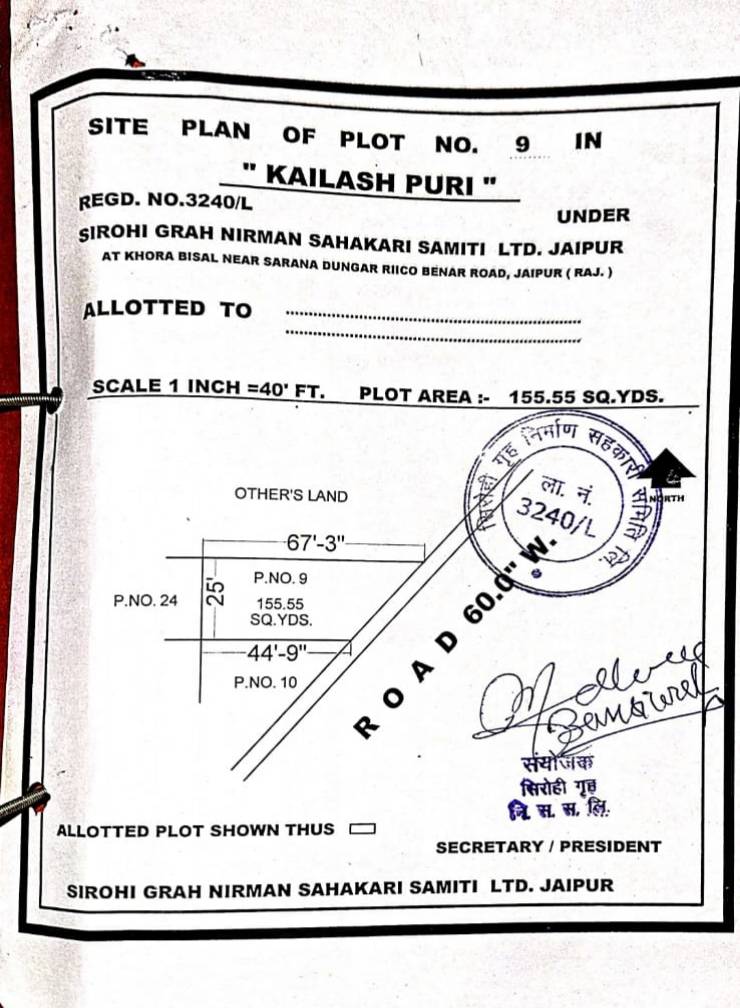 SITE PLAN OF PLOT NO. 9 IN
" KAILASH PURI "
REGD. NO.3240/L
UNDER
SIROHI GRAH NIRMAN SAHAKARI SAMITI LTD. JAIPUR
AT KHORA BISAL NEAR SARANA DUNGAR RIICO BENAR ROAD, JAIPUR ( RAJ. )
ALLOTTED TO
SCALE 1 INCH =40' FT. PLOT AREA :- 155.55 SQ.YDS.
सिरोही गृह निर्माण सहकारी समिति लि.
ला. नं.
3240/L
NORTH
OTHER'S LAND
67'-3"
P.NO. 9
25'
155.55
SQ.YDS.
P.NO. 24
44'-9"
P.NO. 10
ROAD 60.0" W.
संयोजक
सिरोही गृह
नि. स. स. लि.
ALLOTTED PLOT SHOWN THUS
SECRETARY / PRESIDENT
SIROHI GRAH NIRMAN SAHAKARI SAMITI LTD. JAIPUR